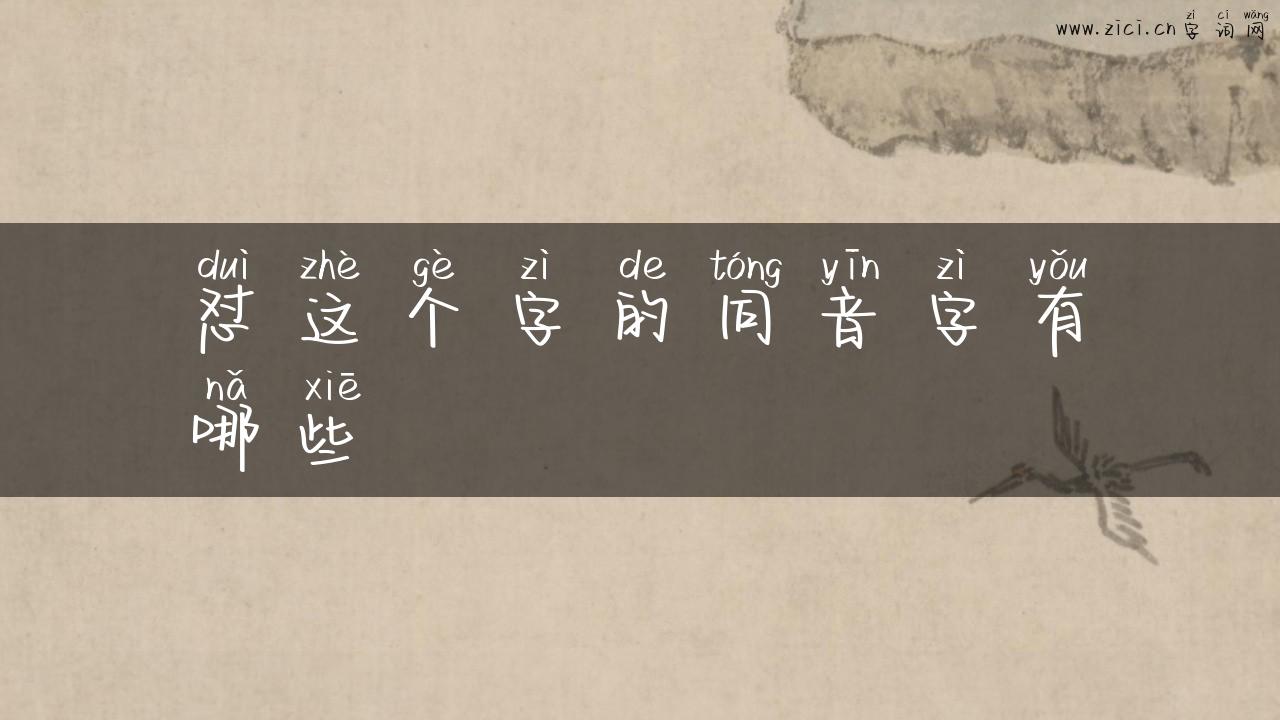 zì cí wǎng
www.zici.cn 字 词 网
duì zhè gè zì de tóng yīn zì yǒu
怼 这 个 字 的 同 音 字 有
nǎ xiē
哪 些